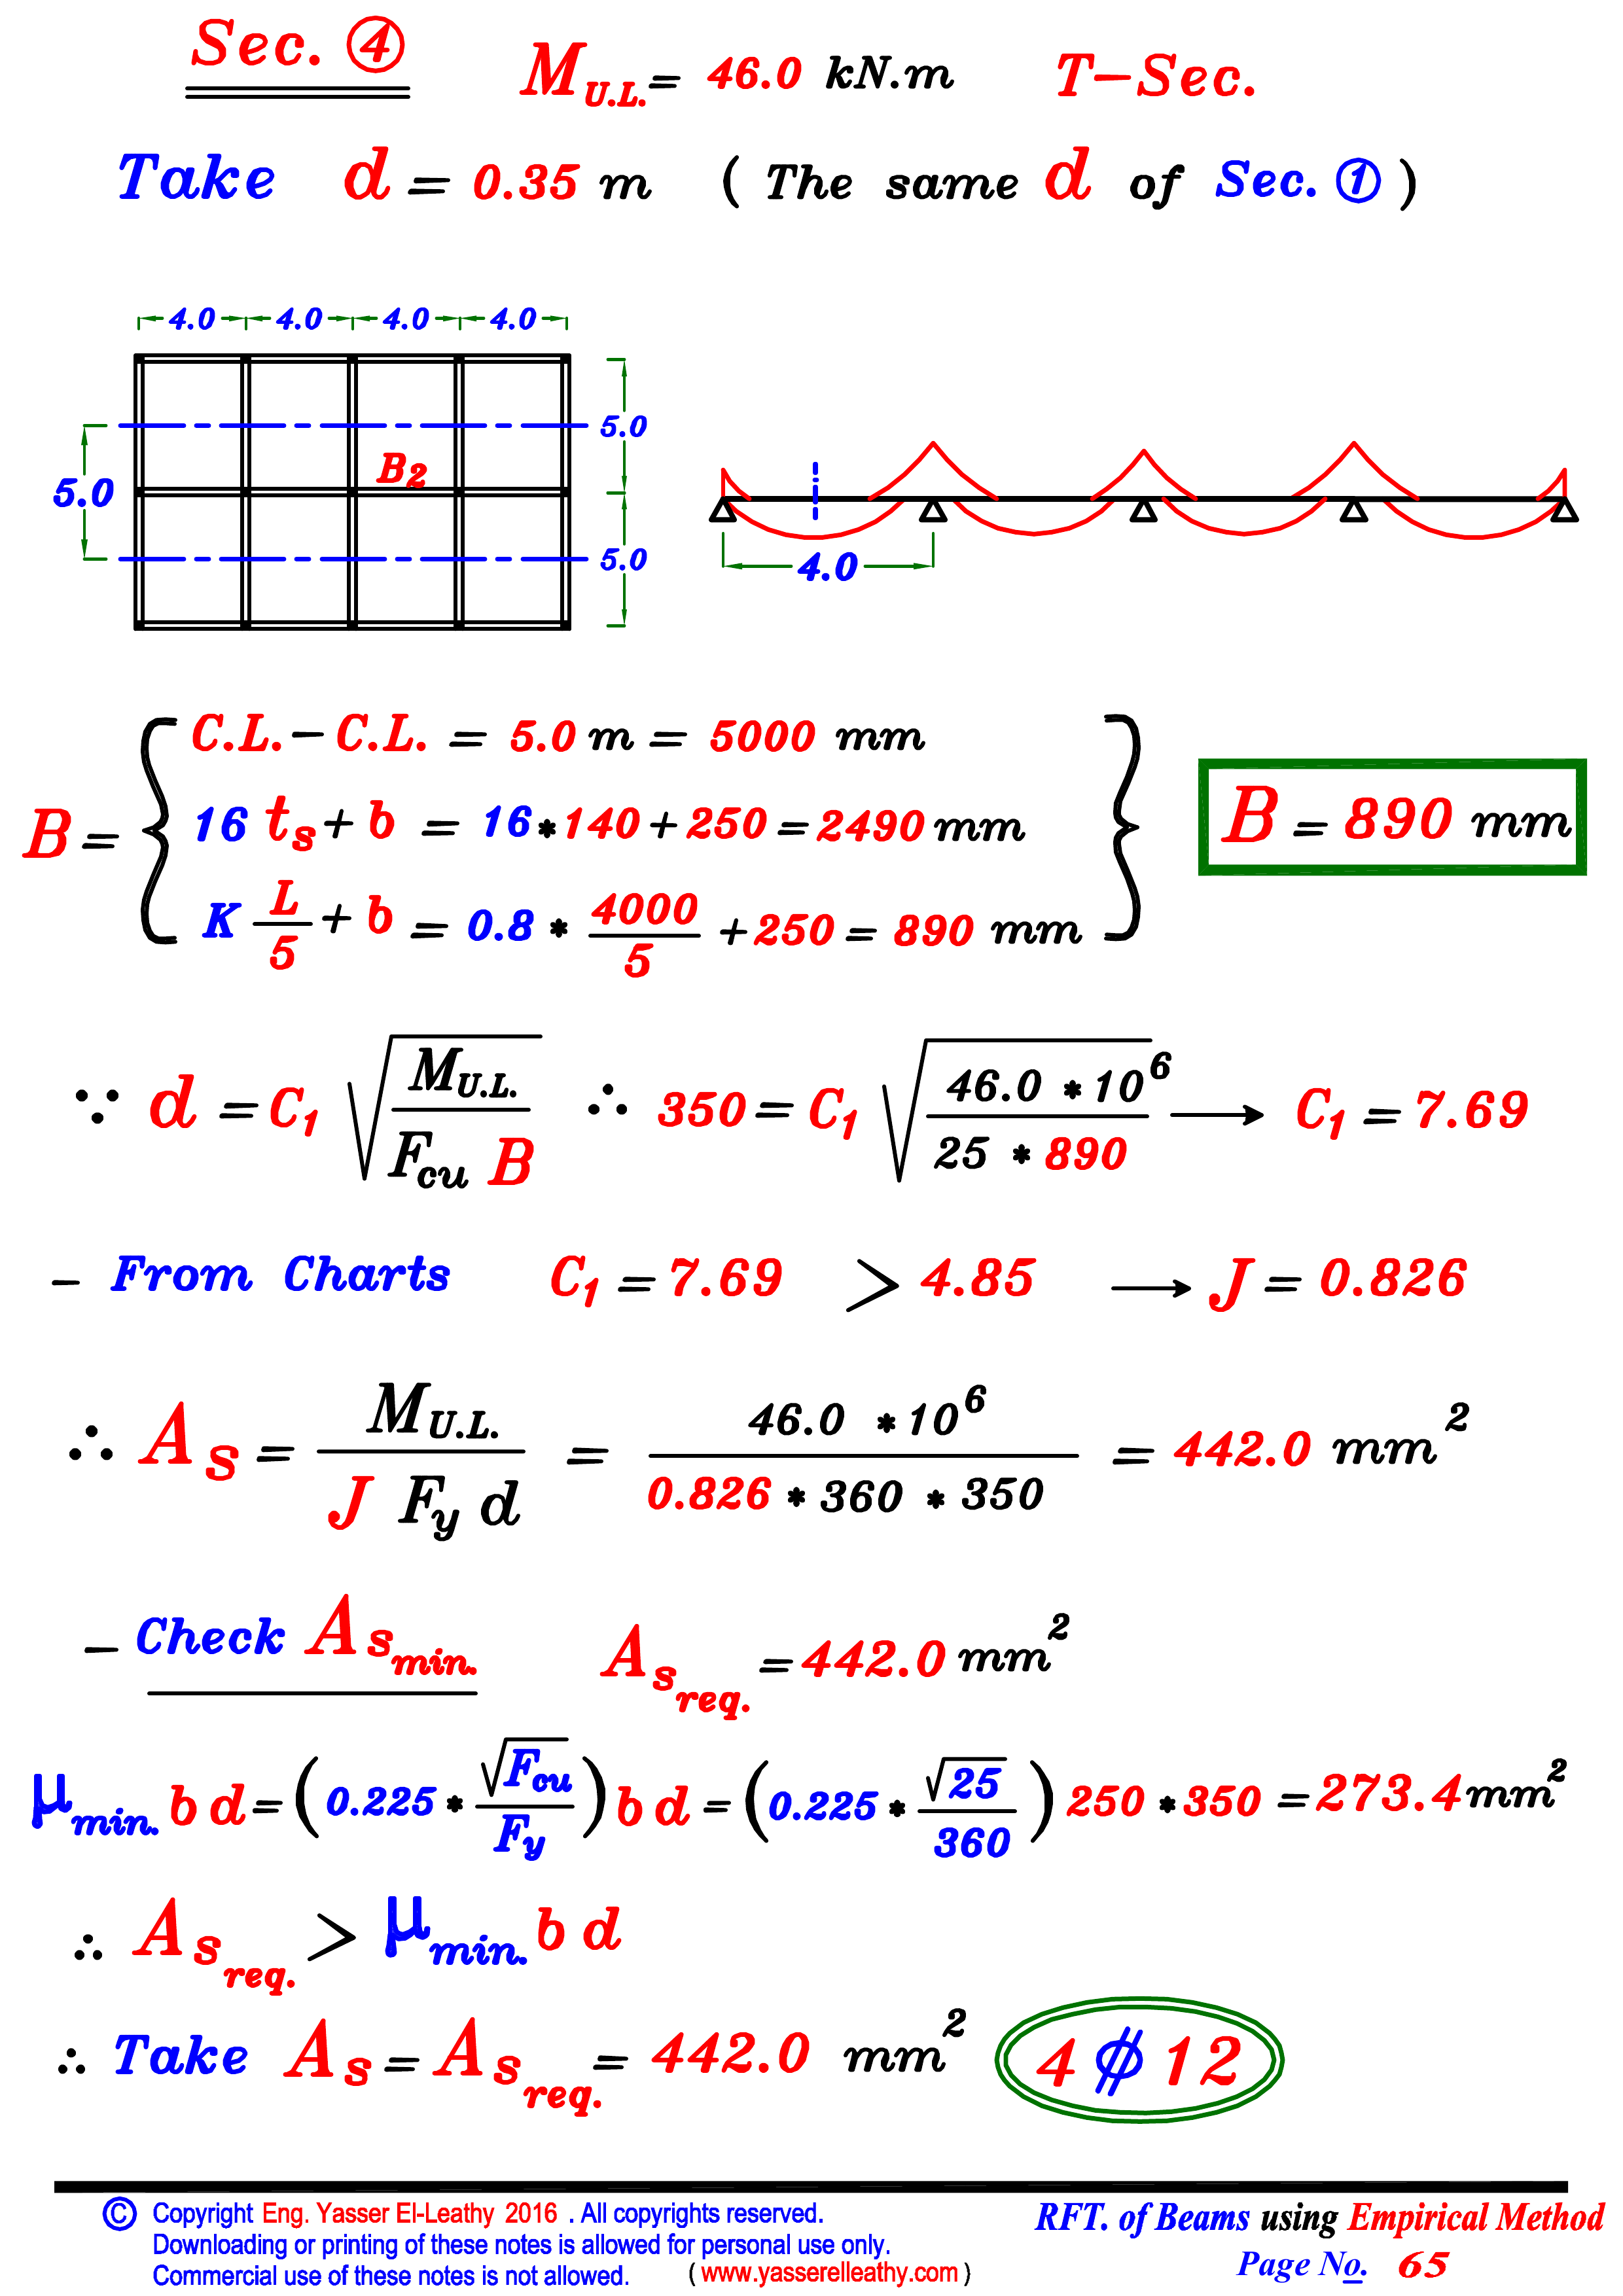 Sec. ④ M U.L. = 46.0 kN.m T-Sec.
Take d = 0.35 m ( The same d of Sec. ① )
4.0 4.0 4.0 4.0
5.0
B2
5.0
5.0
4.0
C.L. - C.L. = 5.0 m = 5000 mm
B = { 16 ts + b = 16 * 140 + 250 = 2490 mm } B = 890 mm
K L/5 + b = 0.8 * 4000/5 + 250 = 890 mm
∵ d = C1 √(M U.L. / Fcu B) ∴ 350 = C1 √(46.0 * 10^6 / 25 * 890) → C1 = 7.69
- From Charts C1 = 7.69 > 4.85 → J = 0.826
∴ As = M U.L. / J Fy d = 46.0 * 10^6 / 0.826 * 360 * 350 = 442.0 mm²
- Check As min. As req. = 442.0 mm²
μ min. b d = (0.225 * √Fcu / Fy) b d = (0.225 * √25 / 360) 250 * 350 = 273.4 mm²
∴ As req. > μ min. b d
∴ Take As = As req. = 442.0 mm² 4 ⌀ 12
© Copyright Eng. Yasser El-Leathy 2016 . All copyrights reserved.
Downloading or printing of these notes is allowed for personal use only.
Commercial use of these notes is not allowed. ( www.yasserelleathy.com )
RFT. of Beams using Empirical Method
Page No. 65